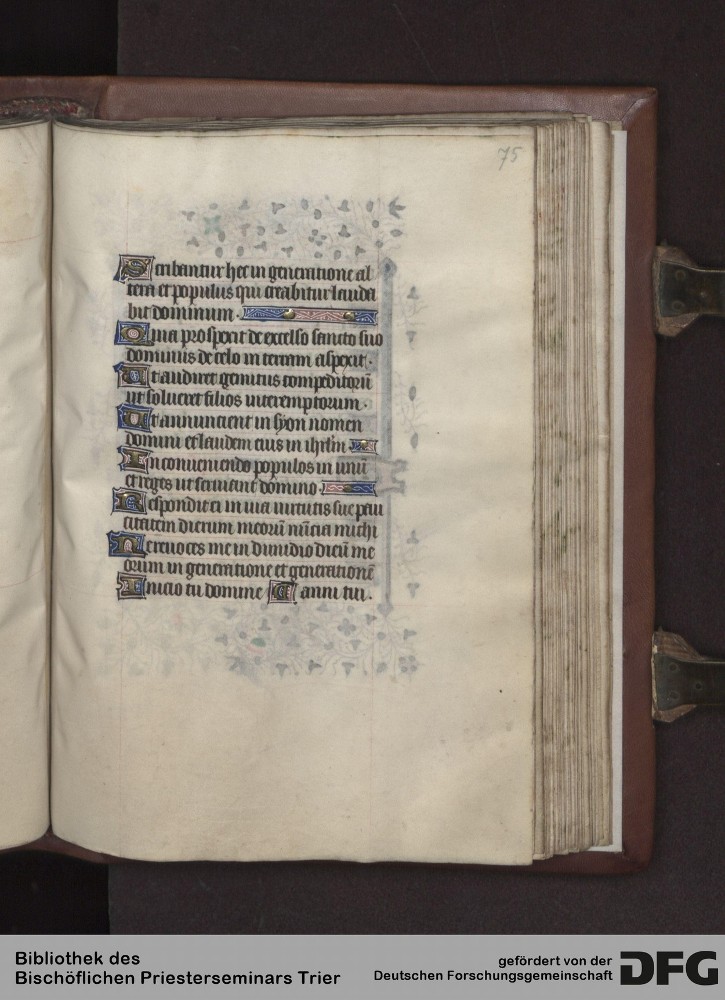 75
Scribantur hec in generatione al
tera et populus qui creabitur lauda
bit dominum.
Quia prospexit de excelso sancto suo
dominus de celo in terram aspexit.
Ut audiret gemitus compeditorū
ut solueret filios interemptorum.
Ut annuncient in syon nomen
domini et laudem eius in ihrlm
In conueniendo populos in unū
et reges ut seruiant domino.
Respondit ei in uia uirtutis sue pau
citatem dierum meorū nūcia michi
Ne reuoces me in dimidio dierū me
orum in generatione et generationē
Inicio tu domine Et anni tui.
Bibliothek des
Bischöflichen Priesterseminars Trier
gefördert von der
Deutschen Forschungsgemeinschaft
DFG